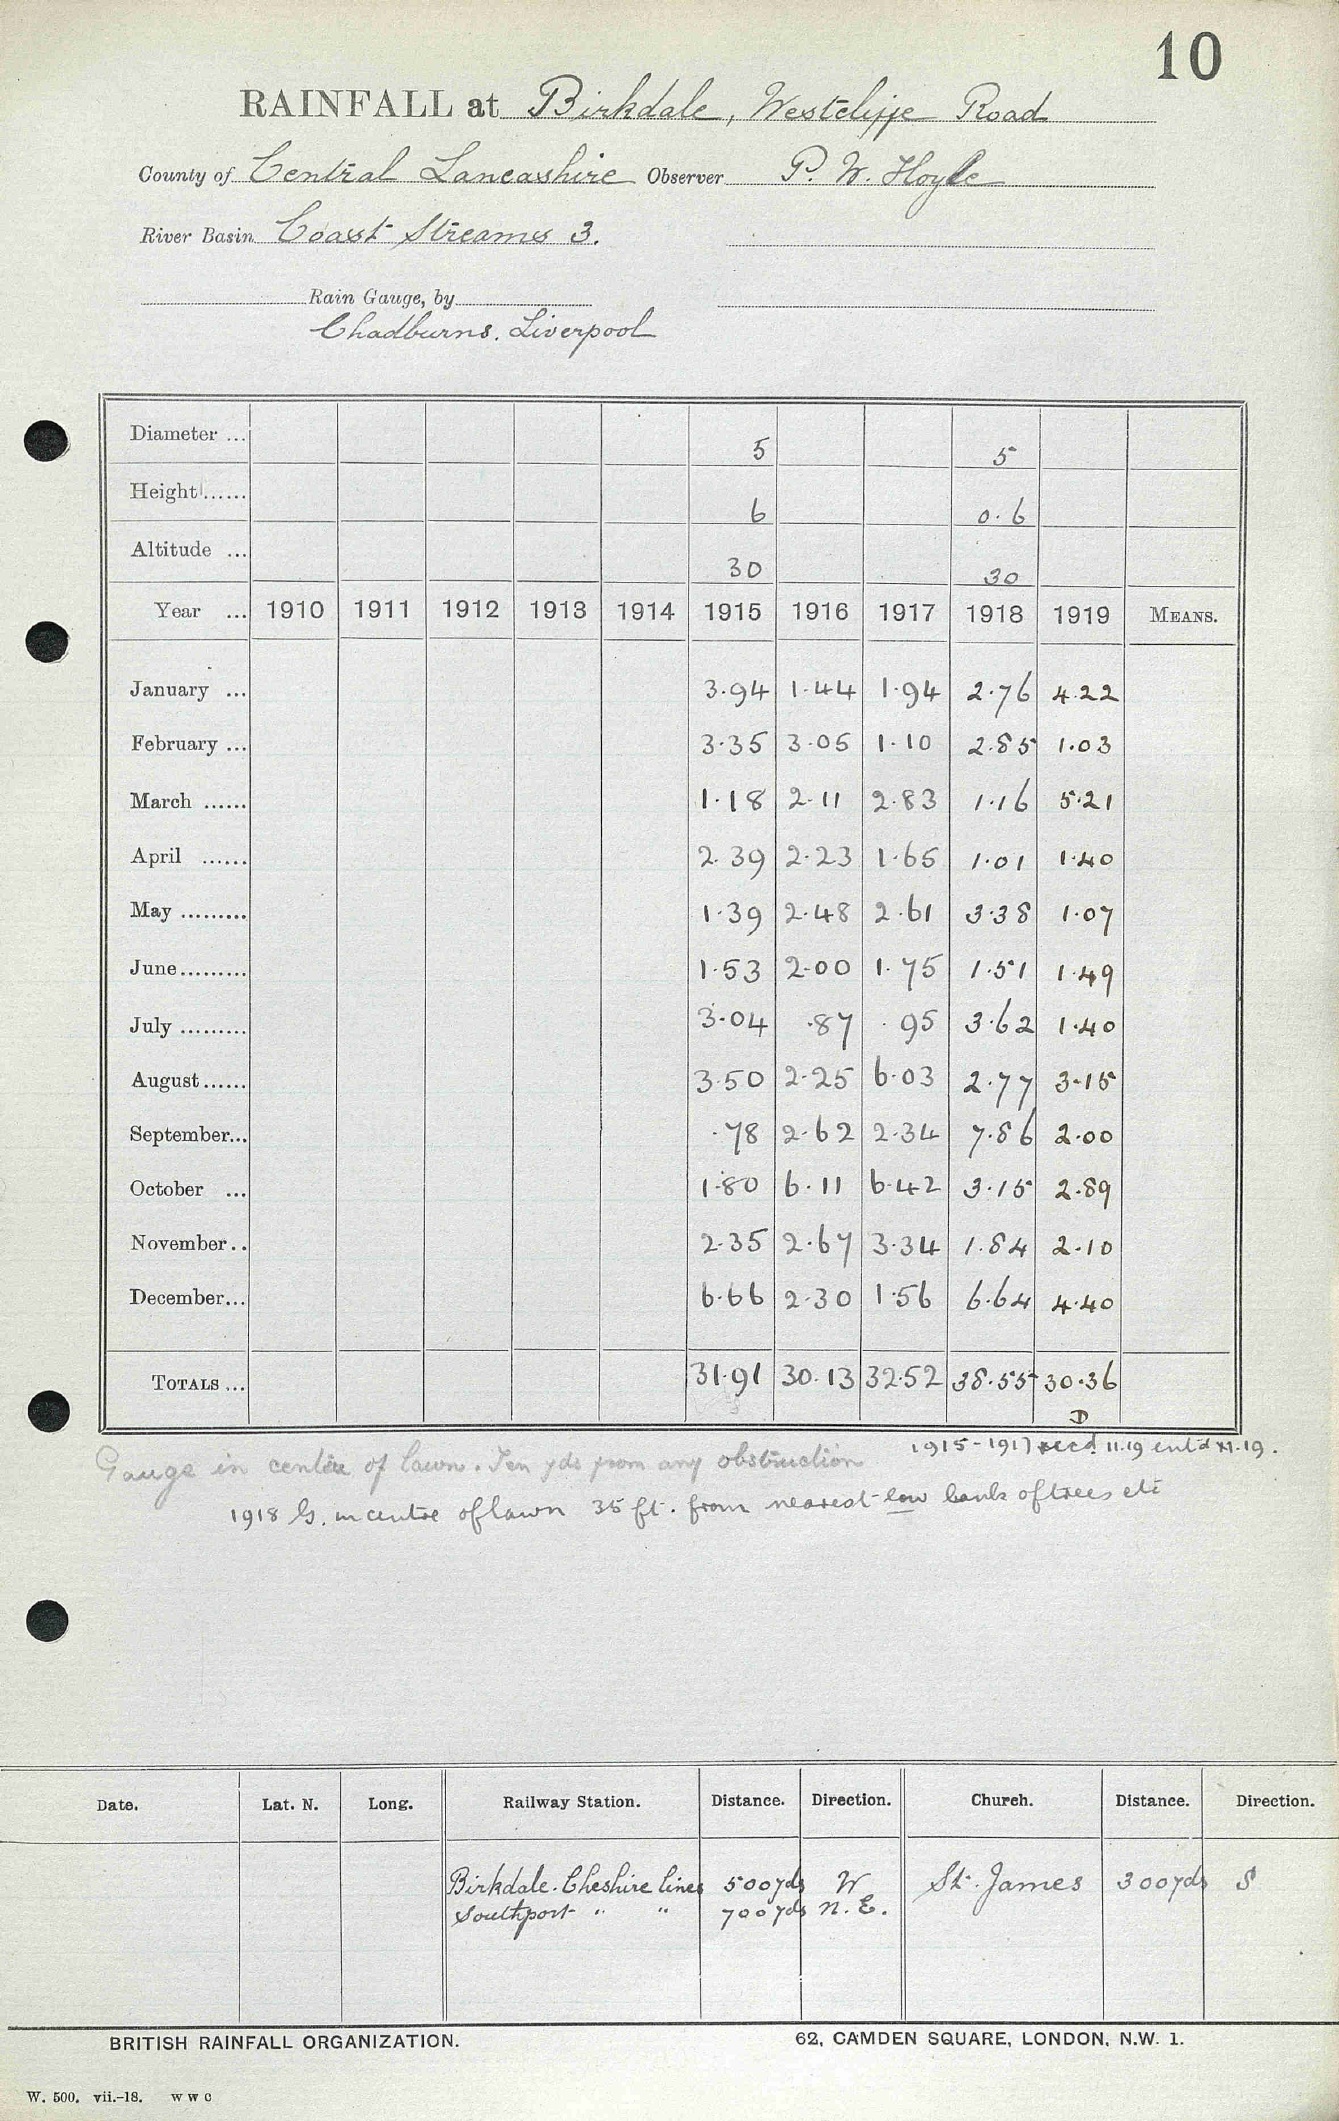 10
RAINFALL at Birkdale, Westcliffe Road
County of Central Lancashire Observer P. W. Hoyle
River Basin Coast Streams 3.
Rain Gauge, by
Chadburns. Liverpool
Diameter ... 5 5
Height ...... 6 0.6
Altitude ... 30 30
Year ... 1910 1911 1912 1913 1914 1915 1916 1917 1918 1919 MEANS.
January ... 3.94 1.44 1.94 2.76 4.22
February ... 3.35 3.05 1.10 2.85 1.03
March ...... 1.18 2.11 2.83 1.16 5.21
April ...... 2.39 2.23 1.65 1.01 1.40
May ......... 1.39 2.48 2.61 3.38 1.07
June ......... 1.53 2.00 1.75 1.51 1.49
July ......... 3.04 .87 .95 3.62 1.40
August ...... 3.50 2.25 6.03 2.77 3.15
September... .78 2.62 2.34 7.86 2.00
October ... 1.80 6.11 6.42 3.15 2.89
November.. 2.35 2.67 3.34 1.84 2.10
December... 6.66 2.30 1.56 6.64 4.40
TOTALS ... 31.91 30.13 32.52 38.55 30.36
D
1915-1917 recd. 11.19 entd XI.19.
Gauge in centre of lawn. Ten yds from any obstruction
1918 G. in centre of lawn 35 ft. from nearest low bank of trees etc
Date. Lat. N. Long. Railway Station. Distance. Direction. Church. Distance. Direction.
Birkdale. Cheshire lines 500yds W St. James 300yds S
Southport " " 700yds N.E.
BRITISH RAINFALL ORGANIZATION. 62, CAMDEN SQUARE, LONDON, N.W. 1.
W. 500. vii.-18. W W C